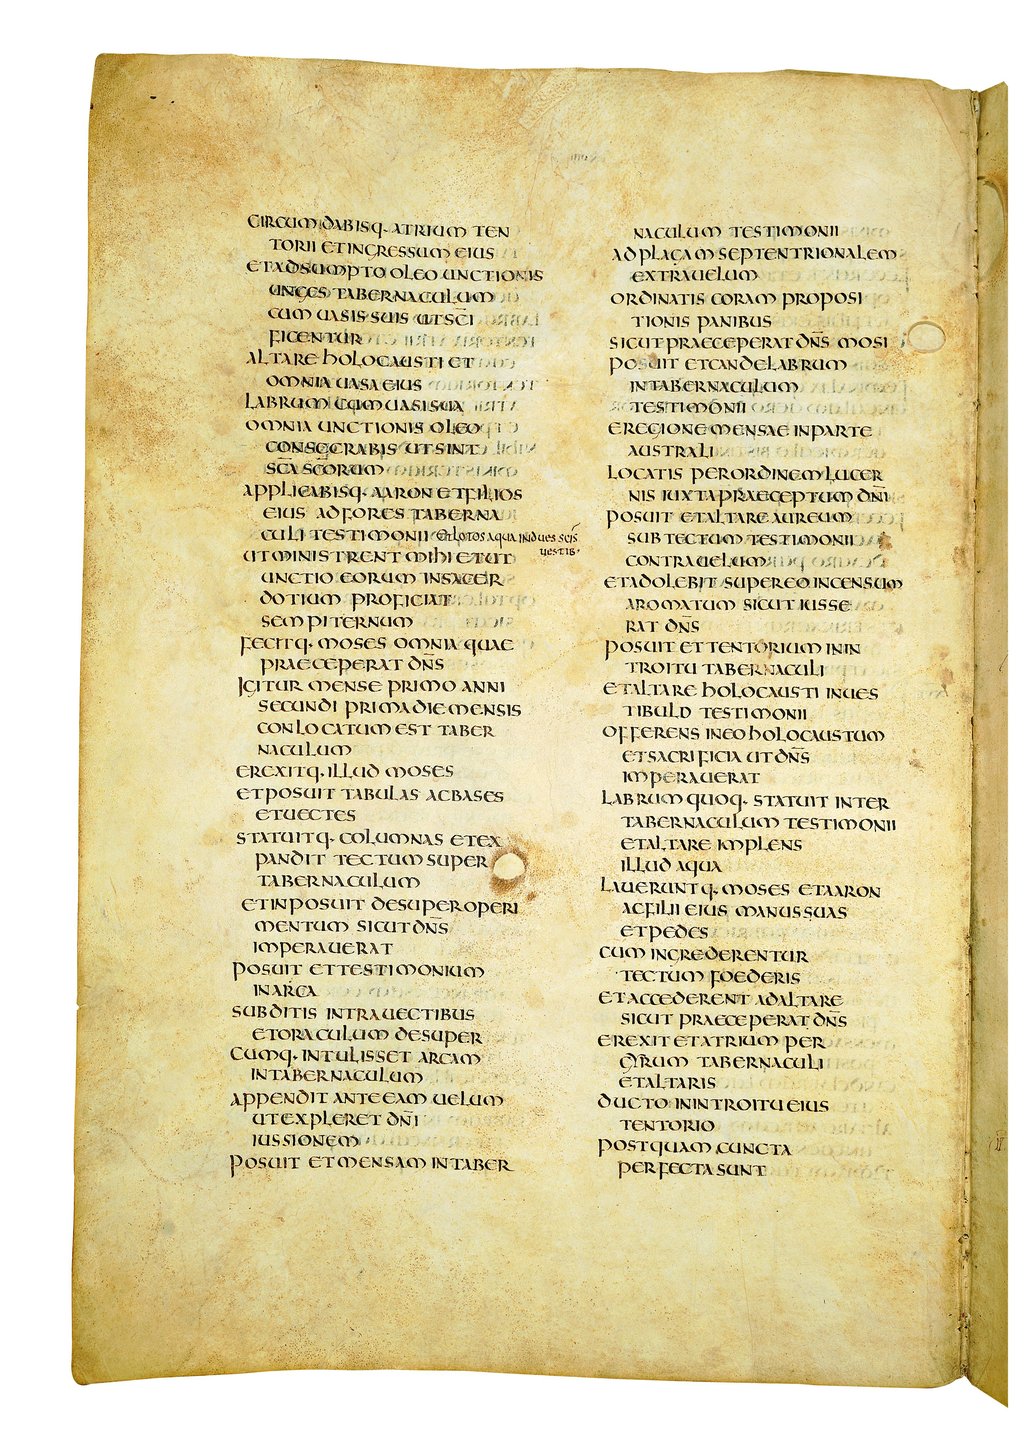 CIRCUMDABISQ· ATRIUM TEN
TORII ET INGRESSUM EIUS
ET ADSUMPTO OLEO UNCTIONIS
UNGES TABERNACULUM
CUM UASIS SUIS UT SC̅I
FICENTUR
ALTARE HOLOCAUSTI ET
OMNIA UASA EIUS
LABRUM CUM UASI SUA
OMNIA UNCTIONIS OLEO
CONSECRABIS UT SINT
SC̅A SC̅ORUM
APPLICABISQ· AARON ET FILIOS
EIUS AD FORES TABERNA
CULI TESTIMONII et lotos aqua indues sc̅is
uestib·
UT MINISTRENT MIHI ET UT
UNCTIO EORUM IN SACER
DOTIUM PROFICIAT
SEMPITERNUM
FECITQ· MOSES OMNIA QUAE
PRAECEPERAT DN̅S
IGITUR MENSE PRIMO ANNI
SECUNDI PRIMA DIE MENSIS
CONLOCATUM EST TABER
NACULUM
EREXITQ· ILLUD MOSES
ET POSUIT TABULAS AC BASES
ET UECTES
STATUITQ· COLUMNAS ET EX
PANDIT TECTUM SUPER
TABERNACULUM
ET INPOSUIT DESUPER OPERI
MENTUM SICUT DN̅S
IMPERAUERAT
POSUIT ET TESTIMONIUM
IN ARCA
SUBDITIS INTRA UECTIBUS
ET ORACULUM DESUPER
CUMQ· INTULISSET ARCAM
IN TABERNACULUM
APPENDIT ANTE EAM UELUM
UT EXPLERET DN̅I
IUSSIONEM
POSUIT ET MENSAM IN TABER
NACULUM TESTIMONII
AD PLAGAM SEPTENTRIONALEM
EXTRA UELUM
ORDINATIS CORAM PROPOSI
TIONIS PANIBUS
SICUT PRAECEPERAT DN̅S MOSI
POSUIT ET CANDELABRUM
IN TABERNACULUM
TESTIMONII
E REGIONE MENSAE IN PARTE
AUSTRALI
LOCATIS PER ORDINEM LUCER
NIS IUXTA PRAECEPTUM DN̅I
POSUIT ET ALTARE AUREUM
SUB TECTUM TESTIMONII
CONTRA UELUM
ET ADOLEBIT SUPER EO INCENSUM
AROMATUM SICUT IUSSE
RAT DN̅S
POSUIT ET TENTORIUM IN IN
TROITU TABERNACULI
ET ALTARE HOLOCAUSTI IN UES
TIBULO TESTIMONII
OFFERENS IN EO HOLOCAUSTUM
ET SACRIFICIA UT DN̅S
IMPERAUERAT
LABRUM QUOQ· STATUIT INTER
TABERNACULUM TESTIMONII
ET ALTARE IMPLENS
ILLUD AQUA
LAUERUNTQ· MOSES ET AARON
AC FILII EIUS MANUS SUAS
ET PEDES
CUM INGREDERENTUR
TECTUM FOEDERIS
ET ACCEDERENT AD ALTARE
SICUT PRAECEPERAT DN̅S
EREXIT ET ATRIUM PER
GYRUM TABERNACULI
ET ALTARIS
DUCTO IN INTROITU EIUS
TENTORIO
POSTQUAM CUNCTA
PERFECTA SUNT